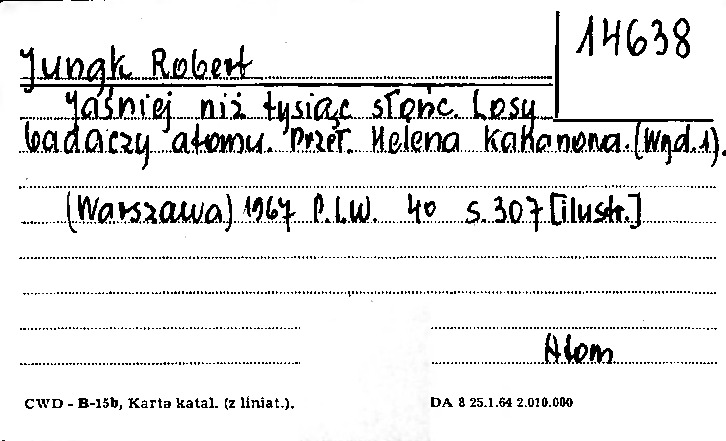 14638
Jungk Robert
Jaśniej niż tysiąc słońc. Losy
badaczy atomu. Przeł. Helena Kahanona. (Wyd. 1).
(Warszawa) 1967 P.I.W. 4° s. 307 [ilustr.]
Atom
CWD - B-15b, Karta katal. (z liniat.).
DA 8 25.1.64 2.010.000